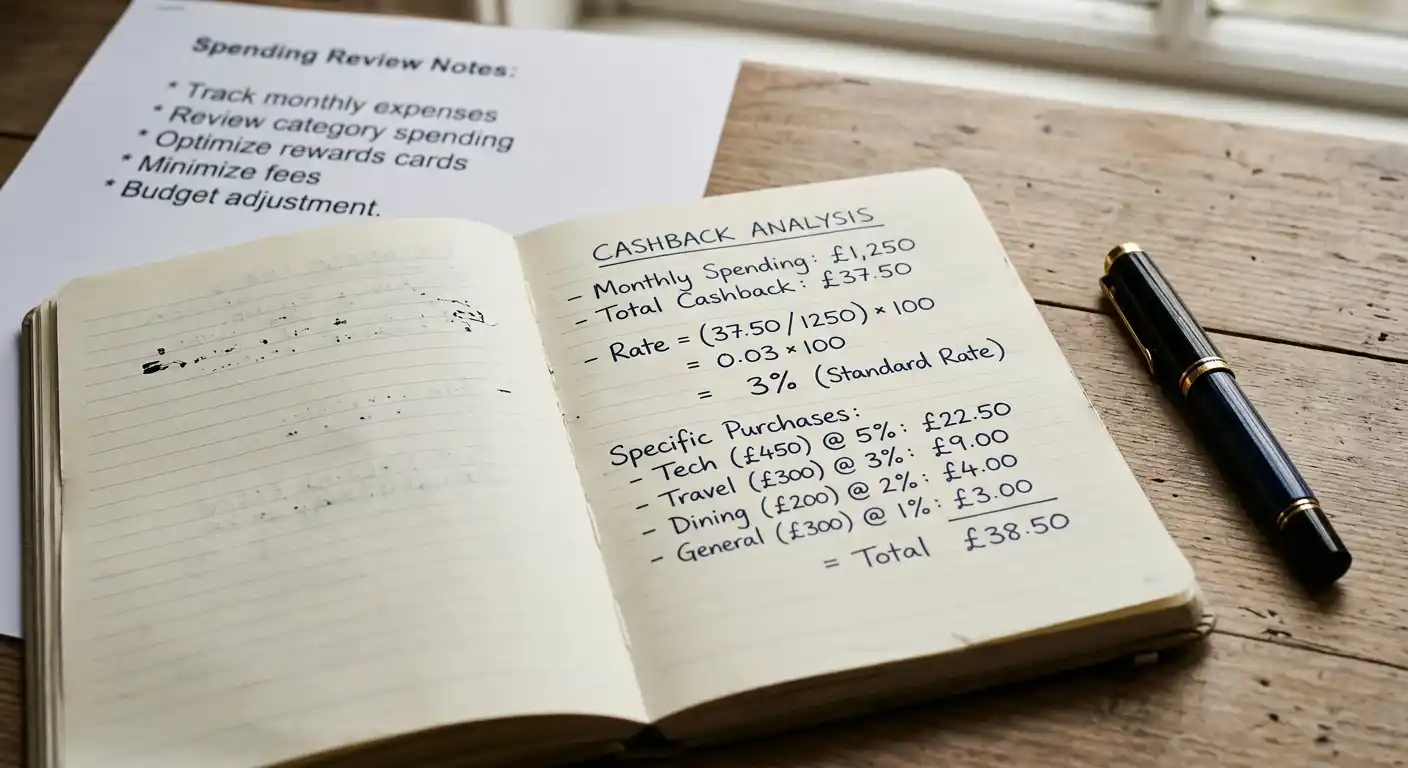 Spending Review Notes:
* Track monthly expenses
* Review category spending
* Optimize rewards cards
* Minimize fees
* Budget adjustment.
CASHBACK ANALYSIS
- Monthly Spending: £1,250
- Total Cashback: £37.50
- Rate = (37.50/1250) × 100
= 0.03 × 100
= 3% (Standard Rate)
Specific Purchases:
- Tech (£450) @ 5%: £22.50
- Travel (£300) @ 3%: £9.00
- Dining (£200) @ 2%: £4.00
- General (£300) @ 1%: £3.00
= Total £38.50